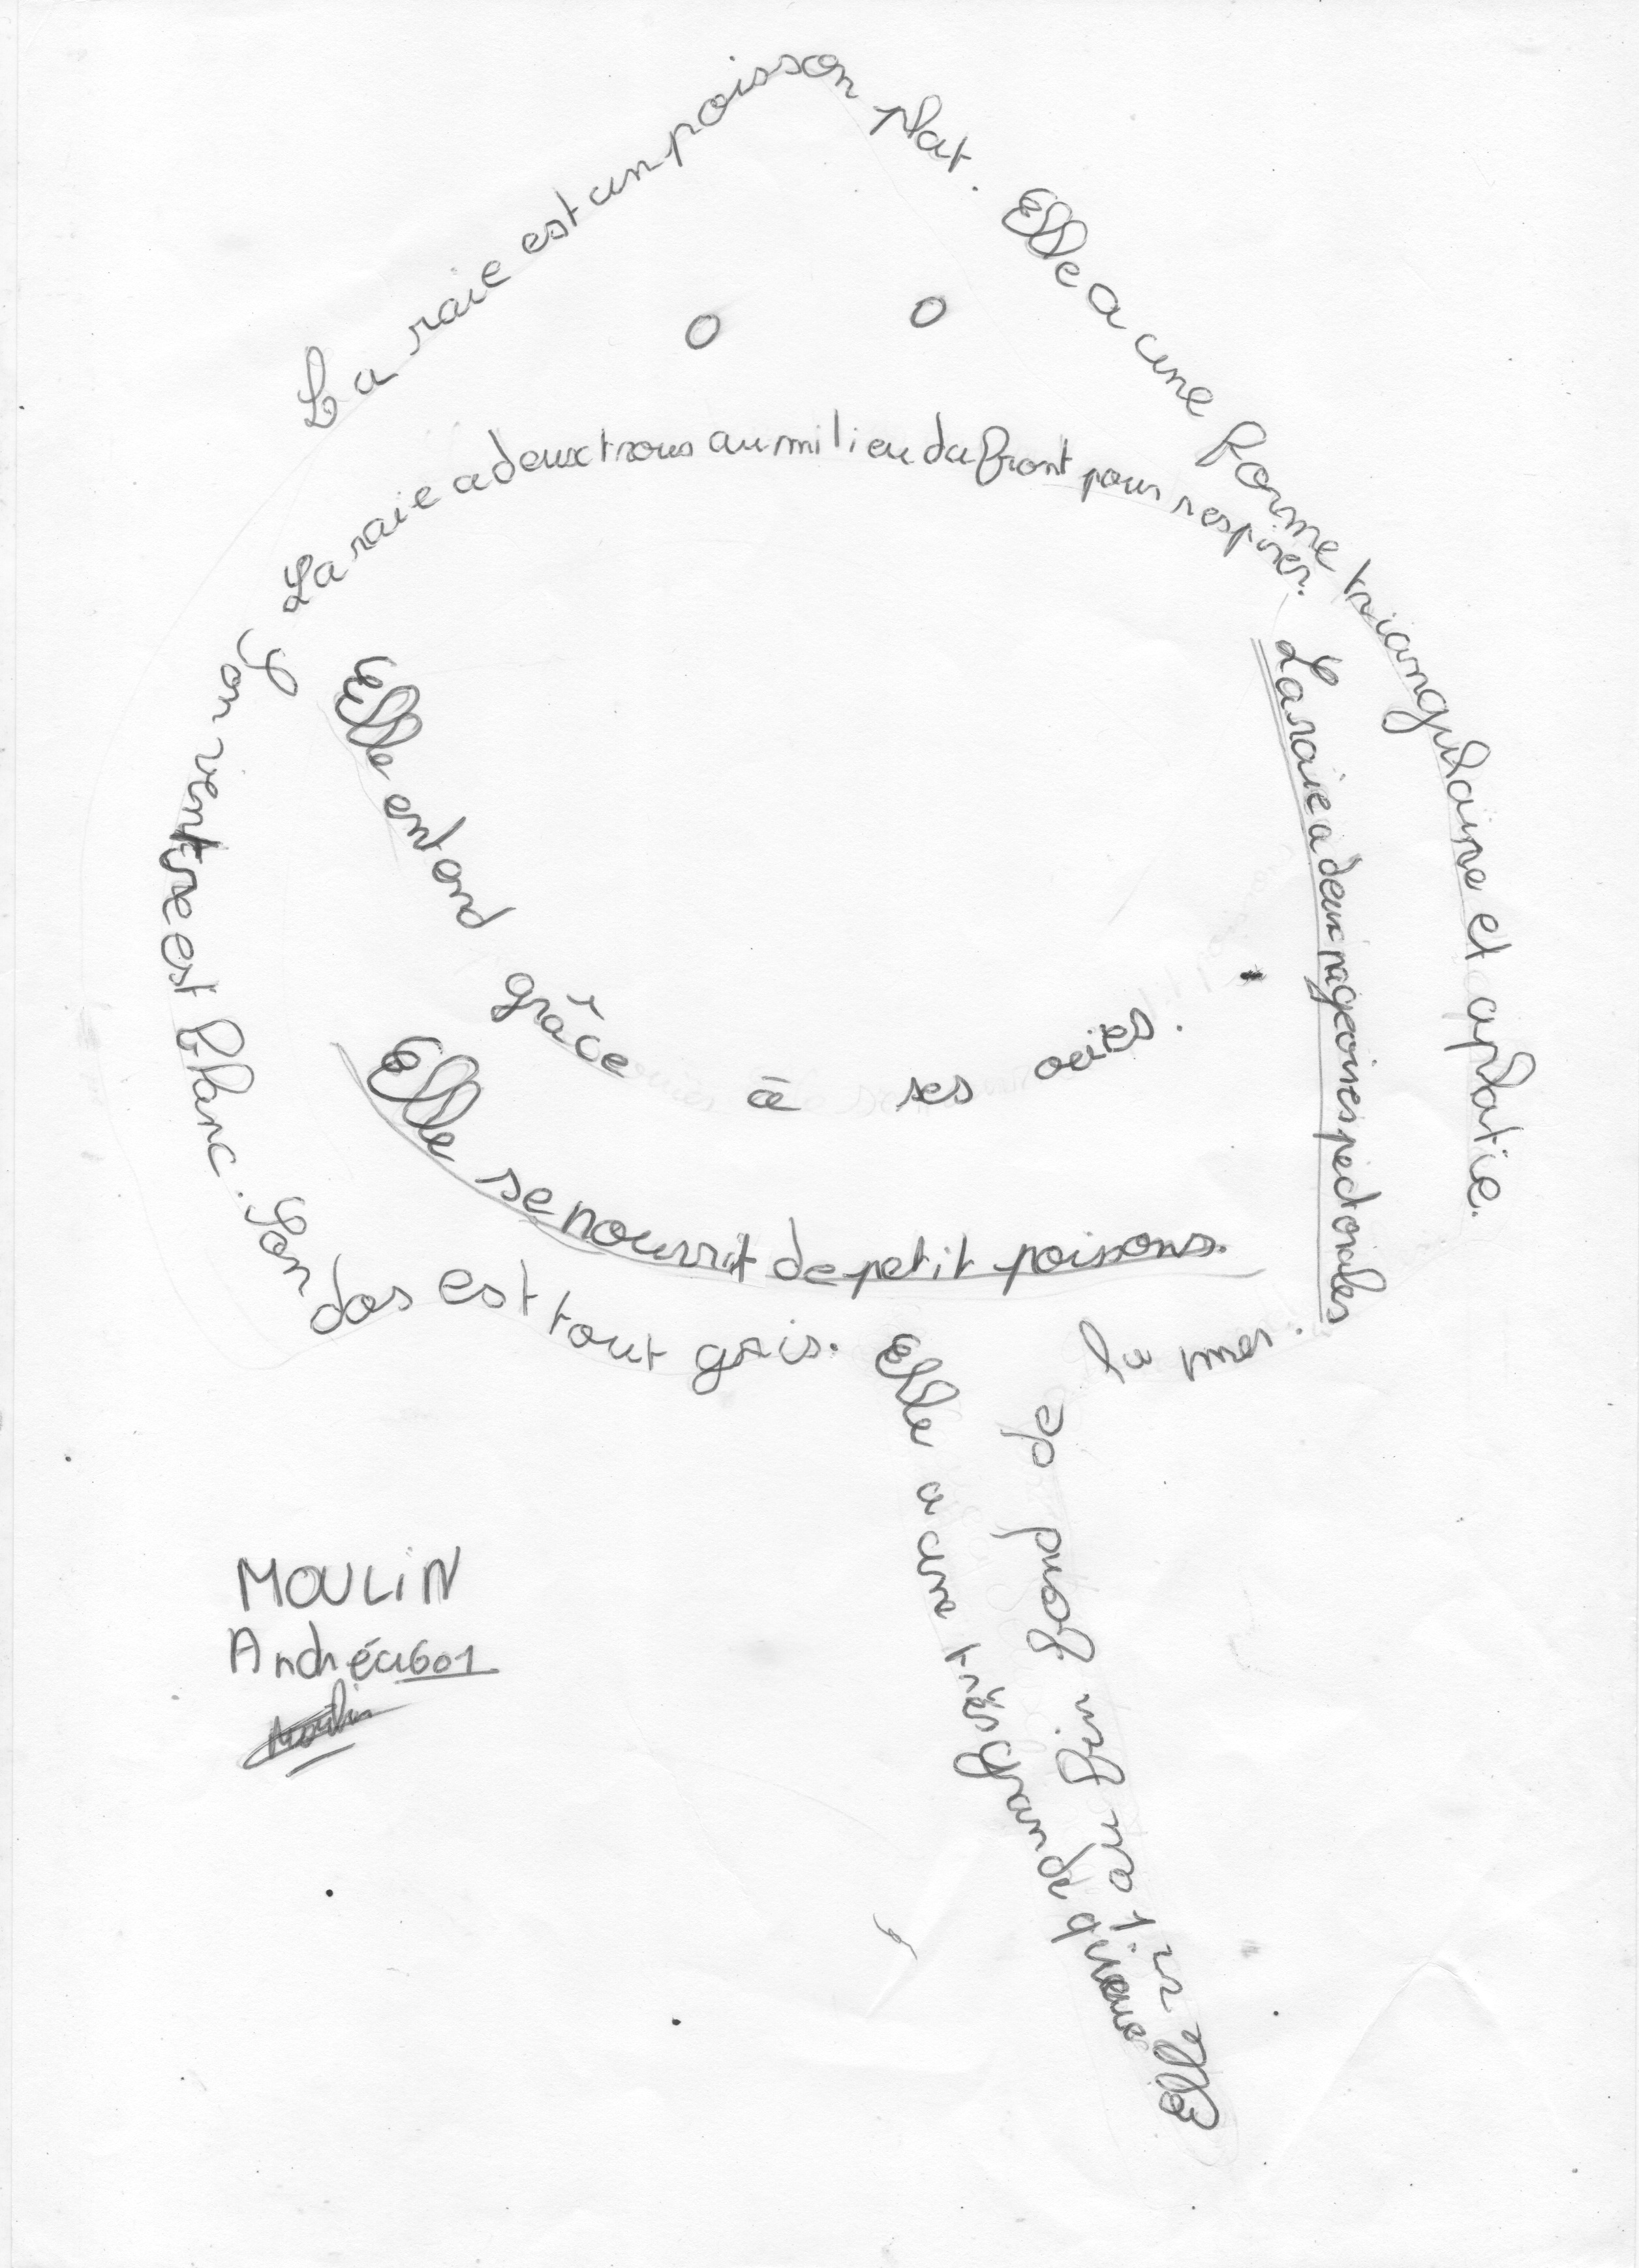 La raie est un poisson plat. Elle a une forme triangulaire et aplatie.
La raie a deux trous au milieu du front pour respirer.
La raie a deux nageoires pectorales
Son ventre est blanc. Son dos est tout gris.
Elle entend grâce à ses ouies.
Elle se nourrit de petit poissons.
Elle a une très grande queue
Elle vit au fin fond de la mer.
MOULIN
Andréa 601
Moulin